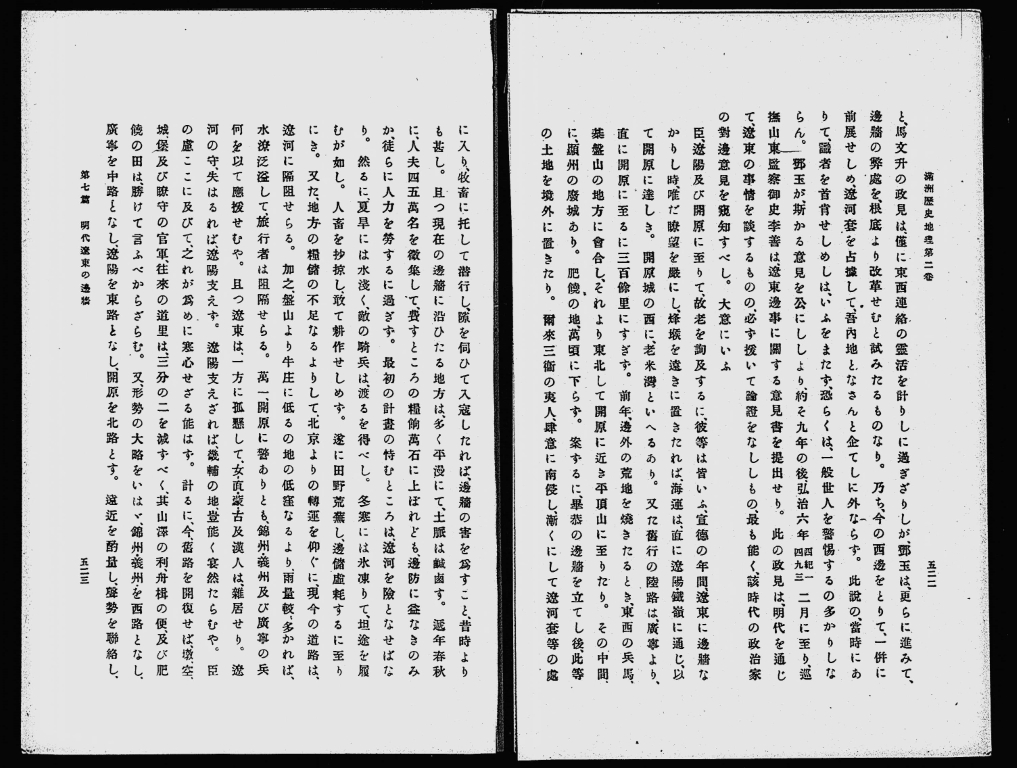 滿洲歷史地理第二卷
五二二
と、馬文升の政見は、僅に東西連絡の靈活を計りしに過ぎざりしが、鄧玉は更らに進みて、
邊牆の弊處を根底より改革せむと試みたるものなり。乃ち、今の西邊をとりて、一併に
前展せしめ、遼河套を占據して、吾內地となさんと企てしに外ならず。此說の當時にあ
りて、識者を首肯せしめしは、いふをまたず、恐らくは、一般世人を警惕するの多かりしな
らん。鄧玉が斯かる意見を公にししより、約そ九年の後、弘治六年四紀一四九三二月に至り、巡
撫山東監察御史李善は、遼東邊事に關する意見書を提出せり。此の政見は、明代を通じ
て、遼東の事情を談するものの、必ず援いて論證をなししもの、最も能く、該時代の政治家
の對邊意見を窺知すべし。大意にいふ
臣、遼陽及び開原に至りて、故老を詢及するに、彼等は皆いふ、宣德の年間、遼東に邊牆な
かりし時、唯だ瞭望を嚴にし、烽堠を遠きに置きたれば、海運は、直に遼陽鐵嶺に通じ、以
て開原に達しき。開原城の西に、老米灣といへるあり。又た舊行の陸路は、廣寧より、
直に開原に至るに三百餘里にすぎず。前年、邊外の荒地を燒きたるとき、東西の兵馬、
棊盤山の地方に會合し、それより東北して開原に近き平頂山に至りたり。その中間
に、顯州の廢城あり。肥饒の地、萬頃に下らず。案するに、畢恭の邊牆を立てし後、此等
の土地を境外に置きたり。爾來三衞の夷人、肆意に南侵し、漸くにして遼河套等の處
に入り、牧畜に托して潛行し、隙を伺ひて入寇したれば、邊牆の害を爲すこと、昔時より
も甚し。且つ現在の邊牆に沿ひたる地方は、多く平漫にて、土脈は鹹鹵す。逐年春秋
に、人夫四五萬名を徵集して、費すところの糧餉萬石に上ぼれども、邊防に益なきのみ
か、徒らに人力を勞するに過ぎず。最初の計畫の恃むところは、遼河を險となせばな
り。然るに、夏旱には水淺く、敵の騎兵は、渡るを得べし。冬寒には氷凍りて、坦途を履
むが如し。人畜を抄掠し、敢て耕作せしめず。遂に田野荒蕪し、邊儲虛耗するに至り
にき。又た地方の糧儲の不足なるよりして、北京よりの轉運を仰ぐに、現今の道路は、
遼河に隔阻せらる。加之、盤山より牛庄に低るの地の低窪なるより、雨量較〻多かれば、
水潦泛溢して、旅行者は阻隔せらる。萬一、開原に警ありとも、錦州義州及び廣寧の兵
何を以て應援せむや。且つ遼東は、一方に孤懸して、女直蒙古及漢人は、雜居せり。遼
河の守、失はるれば、遼陽支えず。遼陽支えざれば、畿輔の地豈能く寧然たらむや。臣
の慮ここに及びて、之れが爲めに寒心せざる能はず。計るに、今、舊路を開復せば、墩、空、
城、堡及び瞭守の官軍、往來の道里は、三分の二を減すべく、其山澤の利、舟楫の便及び肥
饒の田は、勝けて言ふべからざらむ。又、形勢の大略をいはゞ、錦州義州を西路となし、
廣寧を中路となし、遼陽を東路となし、開原を北路とす。遠近を酌量し、聲勢を聯絡し、
第七篇　明代遼東の邊牆
五二三